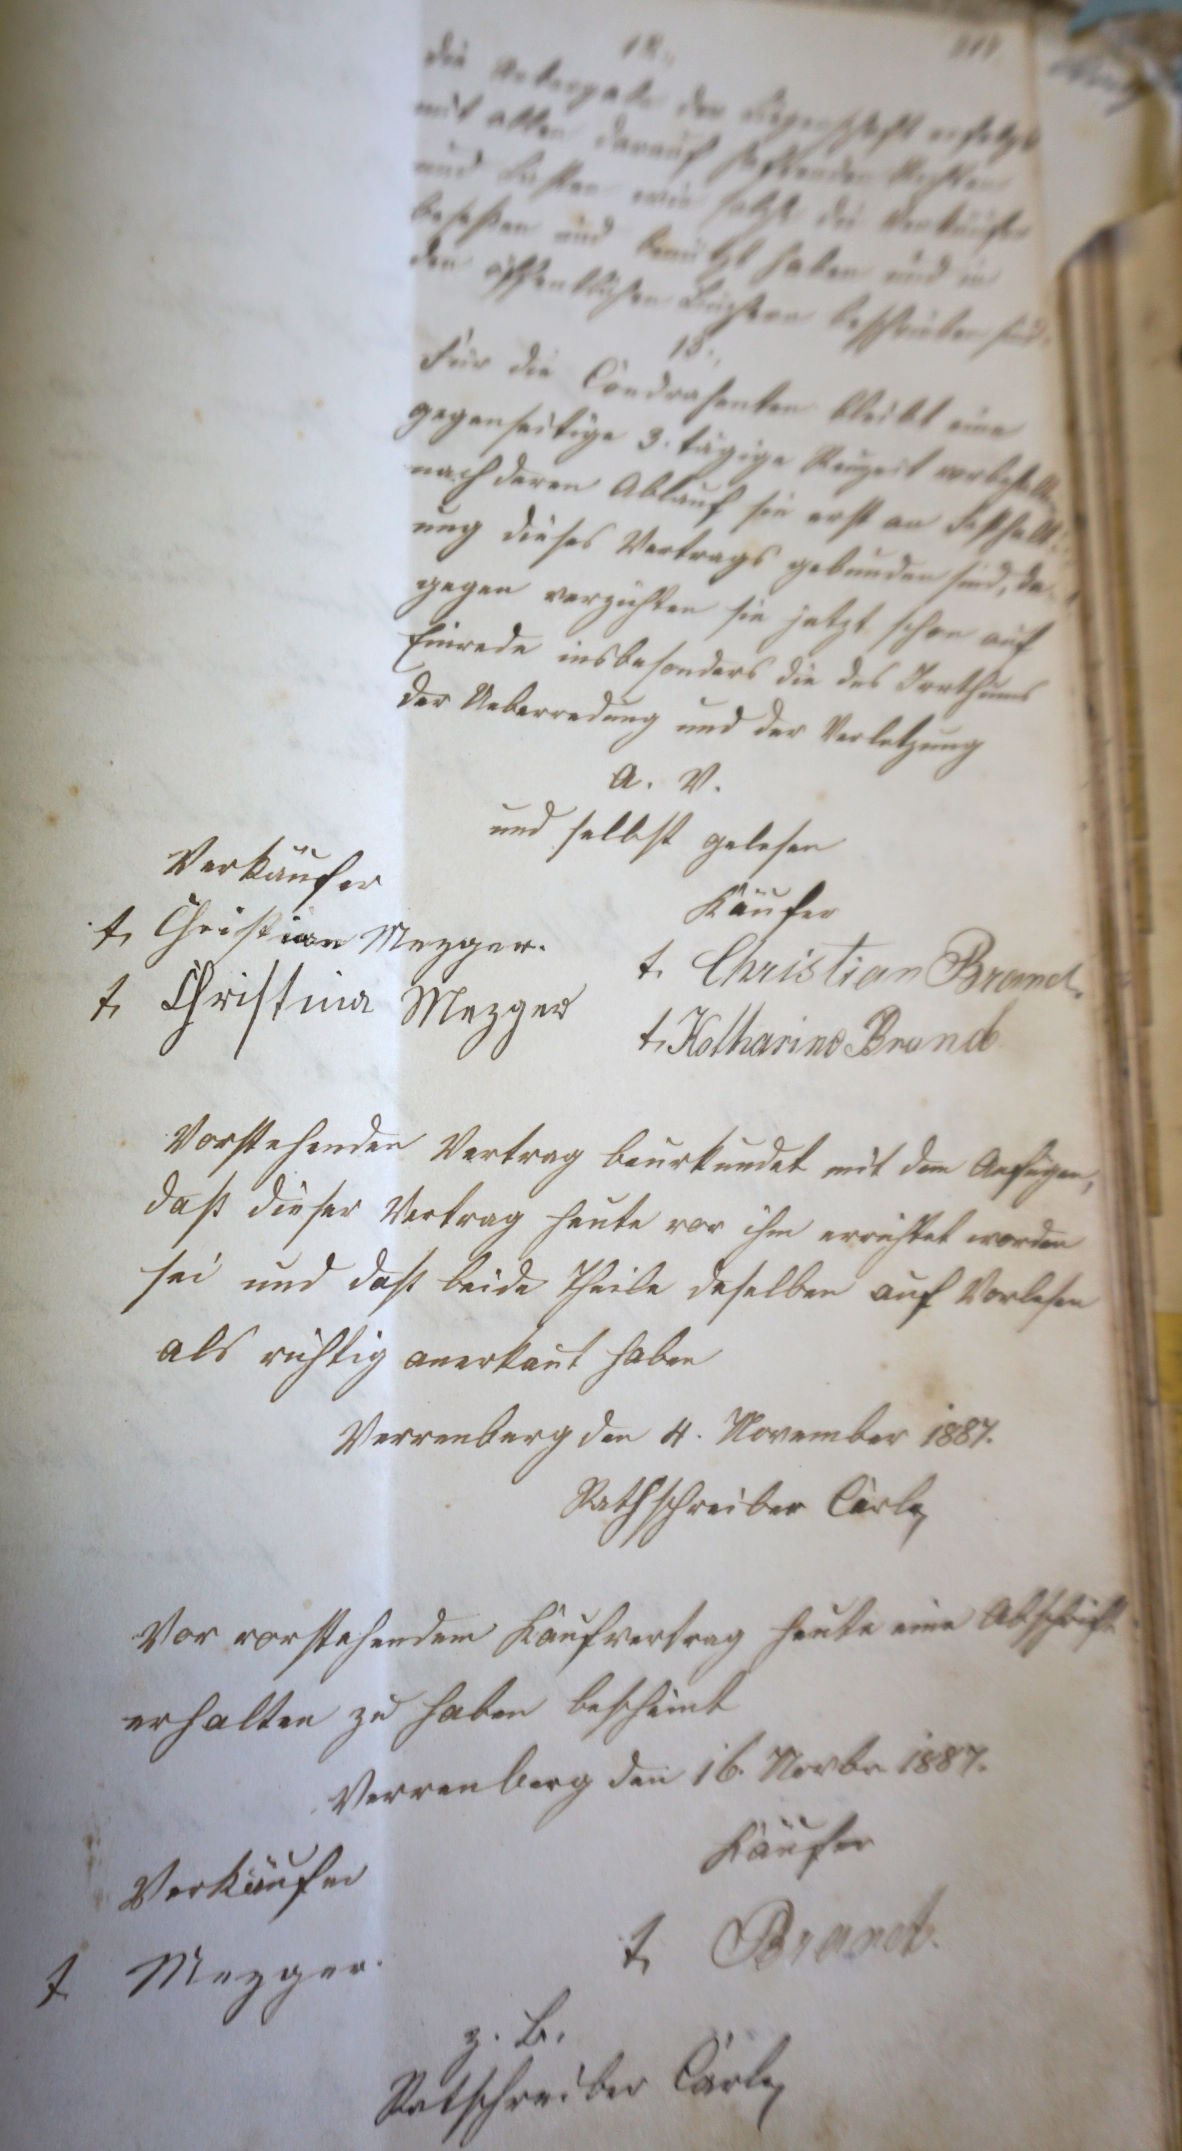 12.,
die Uebergabe der Liegenschaft erfolgt
mit allen darauf haftenden Rechten
und Lasten wie solche die Verkäufer
besessen und benutzt haben und in
den öffentlichen Büchern beschrieben sind.
13.,
Für die Condrahenten bleibt eine
gegenseitige 3. tägige Reuzeit vorbehalten
nach deren Ablauf sie erst an Festhalt-
ung dieses Vertrags gebunden sind, da-
gegen verzichten sie jetzt schon auf
Einrede insbesonders die des Irrthums
der Ueberredung und der Verletzung
A. V.
und selbst gelesen
Verkäufer
t. Christian Mezger.
t. Christina Mezger
Käufer
t. Christian Brand.
t. Katharine Brand
Vorstehenden Vertrag beurkundet mit dem Anfügen,
daß dieser Vertrag heute vor ihm errichtet worden
sei und daß beide Theile deselben auf Vorlesen
als richtig anerkant haben
Verrenberg den 4. November 1887.
Rathschreiber Carle
Vor vorstehendem Kaufvertrag heute eine Abschrift
erhalten zu haben bescheint
Verrenberg den 16. Novbr 1887.
Verkäufer
t. Mezger.
Käufer
t. Brand.
z. B.
Ratschreiber Carle